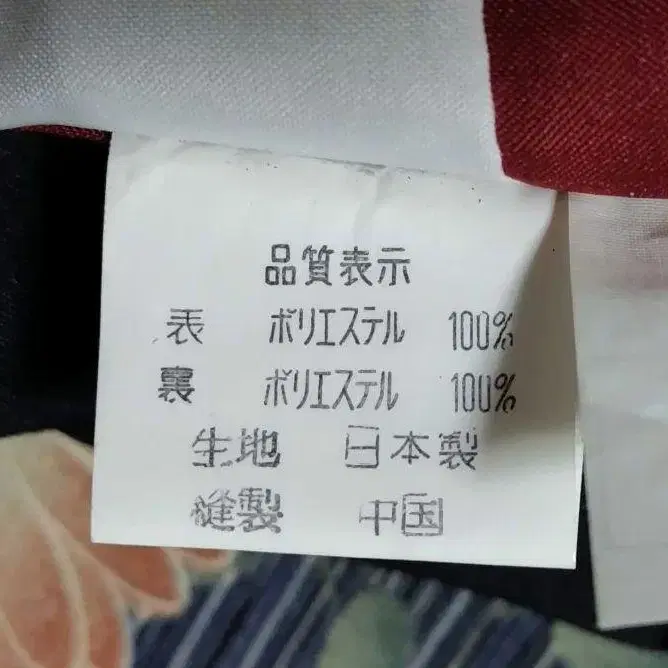 品質表示
表 ポリエステル 100%
裏 ポリエステル 100%
生地 日本製
縫製 中国